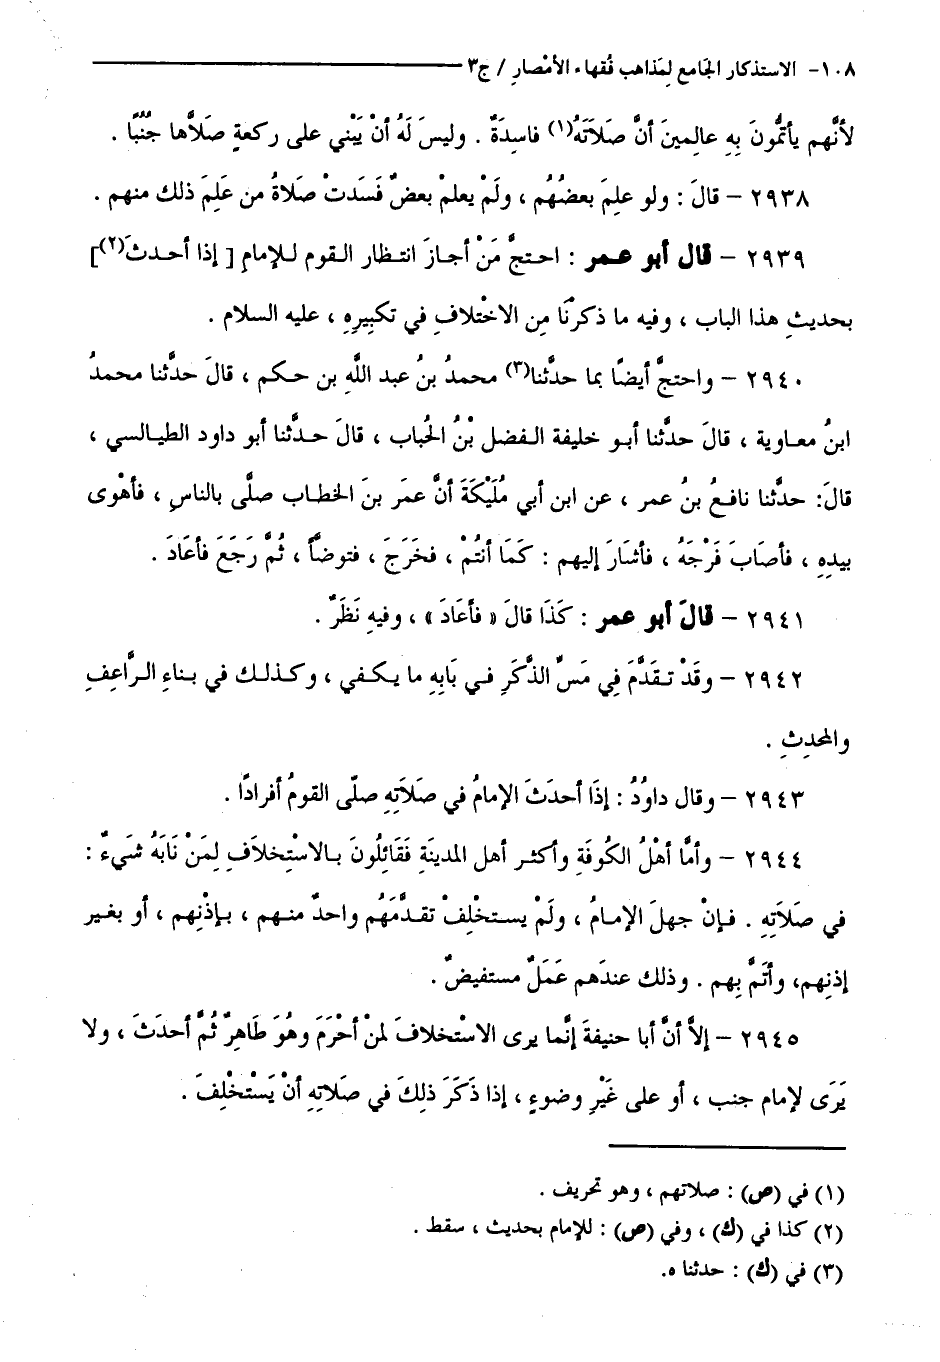 ١٠٨- الاستذكار الجَامع لِمَذاهب فُقهاء الأمْصارِ / ج٣
لأنَّهم يأتمُّونَ بِهِ عالِمينَ أنَّ صَلَاتَهُ(١) فاسِدَةٌ . وليسَ لَهُ أنْ يَبْني على ركعةٍ صَلاَّها جُنُبًا .
٢٩٣٨ – قالَ : ولو علِمَ بعضُهُم ، ولَمْ يعلمْ بعضٌ فَسَدَتْ صَلاةُ من عَلِمَ ذلك منهم .
٢٩٣٩ – قال أبو عمر : احتجَّ مَنْ أجازَ انتظار القوم للإمامِ [ إذا أحدثَ(٢)]
بحديثِ هذا الباب ، وفيه ما ذكرنَا مِن الاخْتلافِ في تكبِيرِهِ ، عليه السلام .
٢٩٤٠ – واحتجَّ أيضًا بما حدَّثنا(٣) محمدُ بنُ عبد اللَّهِ بن حكم ، قالَ حدَّثنا محمدُ
ابنُ معاوية ، قالَ حدَّثنا أبو خليفة الفضل بْنُ الحُباب ، قالَ حدَّثنا أبو داود الطيالسي ،
قالَ: حدَّثنا نافعُ بنُ عمر ، عن ابن أبي مُلَيْكَةَ أنَّ عمَر بنَ الخطاب صلَّى بالناسِ ، فأهْوى
بيدِهِ ، فأصَابَ فَرْجَهُ ، فأشَارَ إليهم : كَمَا أنتُمْ ، فخَرَجَ ، فتوضَّأ ، ثُمَّ رَجَعَ فأعَادَ .
٢٩٤١ – قالَ أبو عمر : كَذَا قالَ « فأعَادَ » ، وفيهِ نَظَرٌ .
٢٩٤٢ – وقَدْ تقَدَّمَ فِي مَسِّ الذَّكَرِ في بَابِهِ ما يكفي ، وكذلك في بناءِ الرَّاعِفِ
والمحدِثِ .
٢٩٤٣ – وقال داودُ : إذَا أحدَثَ الإمامُ في صَلَاتِهِ صلّى القومُ أفرادًا .
٢٩٤٤ – وأمَّا أهْلُ الكُوفَةِ وأكثر أهل المدينَةِ فَقَائِلُونَ بالاسْتِخلاَفِ لِمَنْ نَابَهُ شَيءٌ :
في صَلاَتِهِ . فإنْ جهلَ الإمامُ ، ولَمْ يستخْلِفْ تقدَّمَهُم واحدٌ منهم ، بإذْنِهم ، أو بغير
إذنِهم، وأتَمَّ بِهم . وذلك عندَهم عَمَلٌ مستفيضٌ .
٢٩٤٥ – إلاَّ أنَّ أبا حنيفةَ إنَّما يرى الاسْتخلافَ لمنْ أحْرَمَ وهُوَ طَاهِرٌ ثُمَّ أحدَثَ ، ولا
يَرَى لإمام جنب ، أو على غَيْرِ وضوءٍ ، إذا ذَكَرَ ذلِكَ في صَلاتِهِ أنْ يَسْتَخْلِفَ .
(١) في (ص) : صلاتهم ، وهو تحريف .
(٢) كذا في (ك) ، وفي (ص) : للإمام بحديث ، سقط .
(٣) في (ك) : حدثناه.